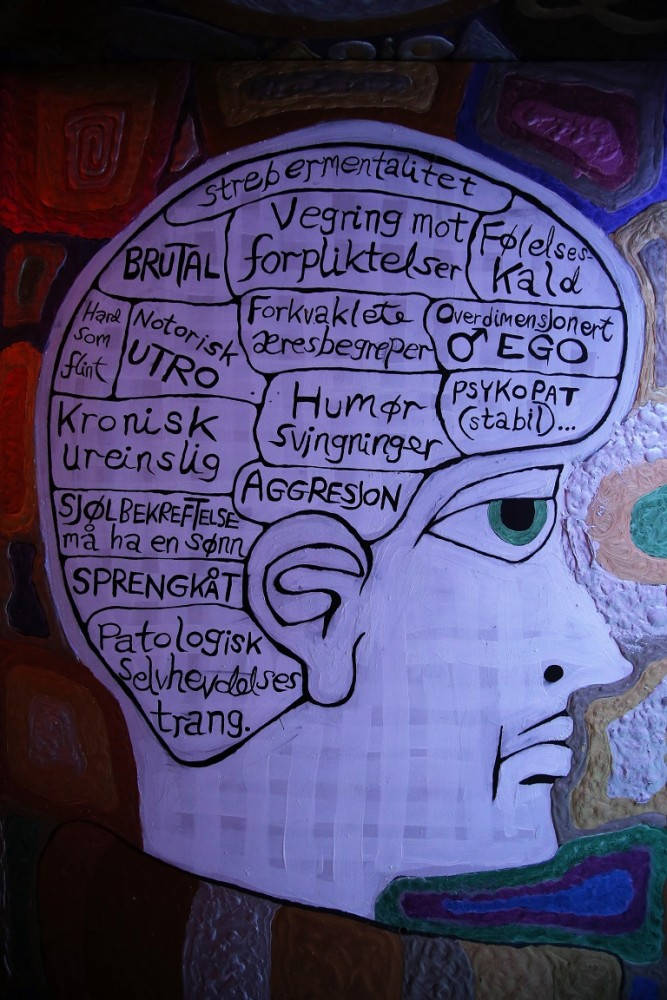 strebermentalitet
BRUTAL
Vegring mot
forpliktelser
Følelses-
Kald
Hard
som
flint
Notorisk
UTRO
Forkvaklete
æresbegreper
Overdimensjonert
♂ EGO
Kronisk
ureinslig
Humør
svjngninger
PSYKOPAT
(stabil)...
AGGRESJON
SJØLBEKREFTELSE
må ha en sønn
SPRENGKÅT
Patologisk
selvhevdelses
trang.